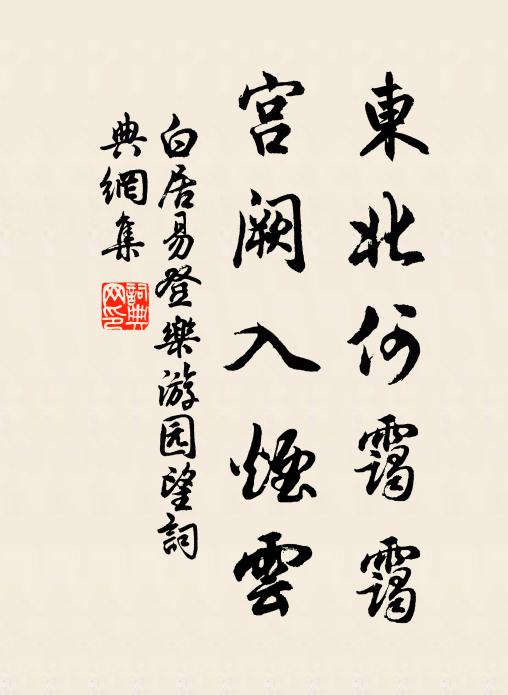 東北何靄靄
宫阙入煙雲
白居易登樂游园望詞
典網集
詞典网印